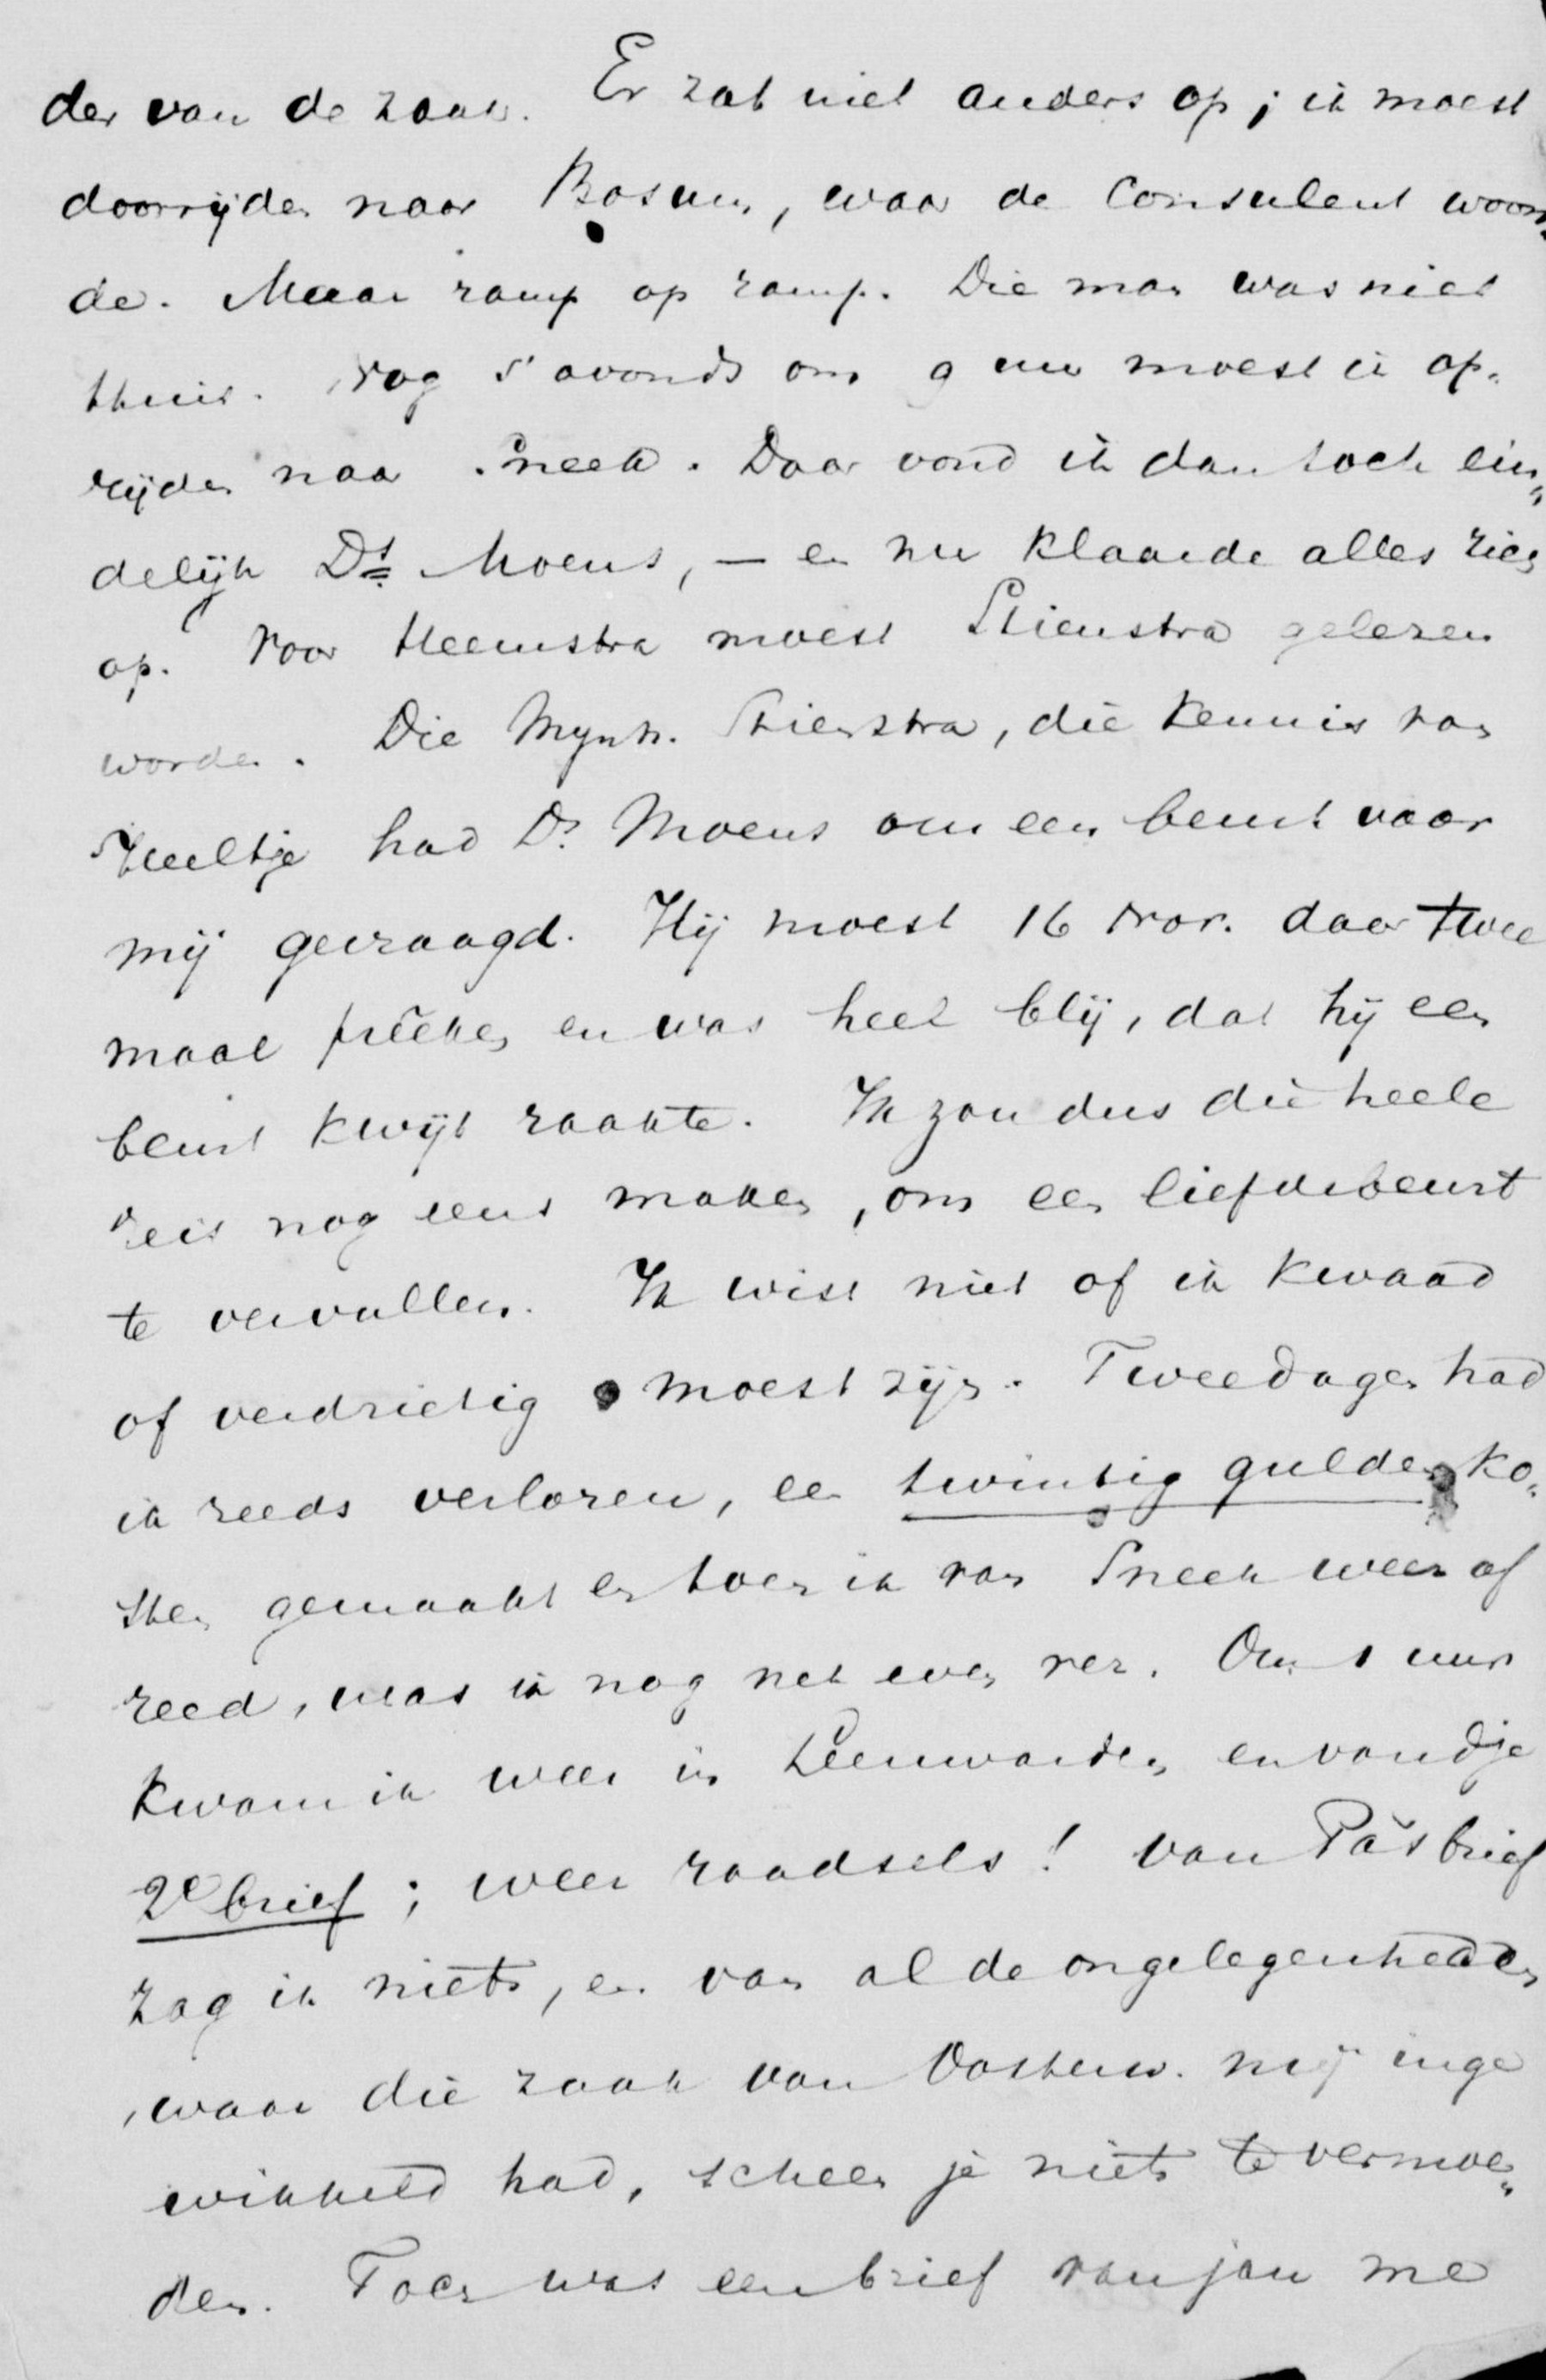 der van de zaak. Er zat niet anders op; ik moest
doorrijden naar Bosum, waar de Consulent woon„
de. Maar ramp op ramp. Die man was niet
thuis. Nog s'avonds om 9 uur moest ik op„
rijden naar Sneek. Daar vond ik dan toch ein„
delijk Ds Moens, — en nu klaarde alles zich
op. Voor Heemstra moest Stienstra gelezen
worden. Die Mynh. Stienstra, die kennis van
Heeltje had Ds Moens om een beurt voor
mij gevraagd. Hij moest 16 Nov. daar twee
maal preeken en was heel blij, dat hij een
beurt kwijt raakte. Ik zou dus die heele
reis nog eens maken, om een liefdebeurt
te vervullen. Ik wist niet of ik kwaad
of verdrietig moest zijn. Twee dagen had
ik reeds verloren, een twintig gulden ko„
sten gemaakt en toen ik van Sneek weer af
reed, was ik nog net even ver. Om 1 uur
kwam ik weer in Leeuwarden en vond je
2e brief; weer raadsels! van Pa's brief
zag ik niets, en van al de ongelegenheden
waar die zaak van Oosterw. mij inge
wikkeld had, scheen je niets te vermoe„
den. Toen was een brief van jou me